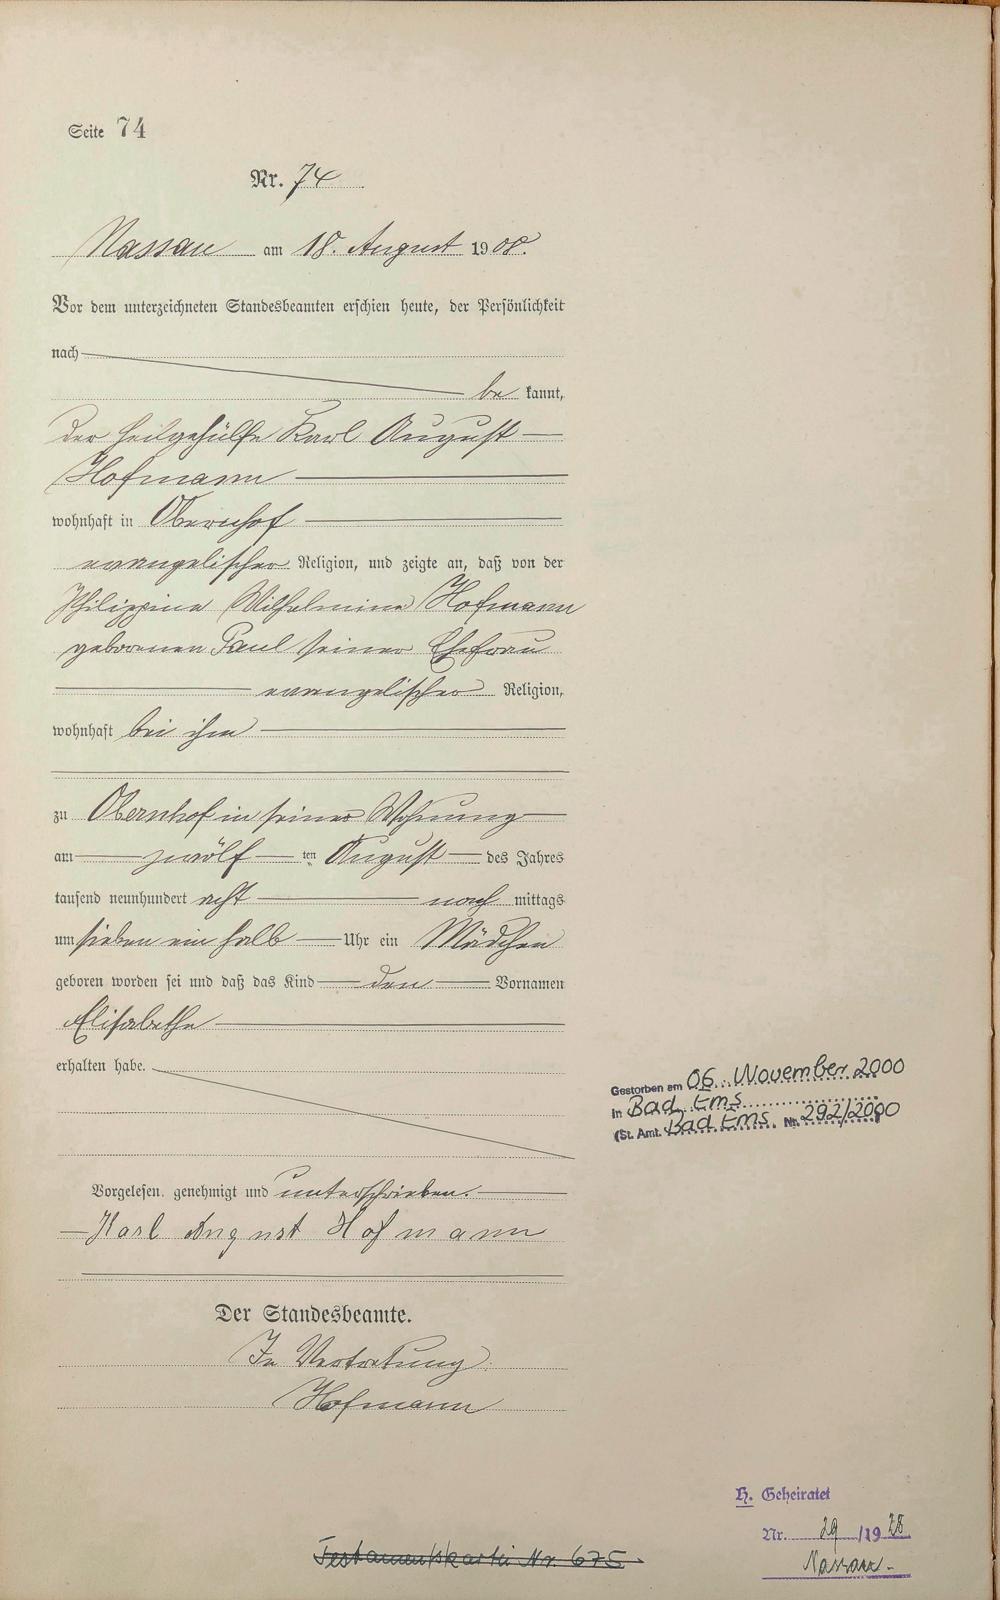 Seite 74
Nr. 74
Nassau am 18. August 1908.
Vor dem unterzeichneten Standesbeamten erschien heute, der Persönlichkeit
nach
be kannt,
der Heilgehülfe Karl August
Hofmann
wohnhaft in Obernhof
evangelischer Religion, und zeigte an, daß von der
Philippine Wilhelmine Hofmann
geborenen Paul seiner Ehefrau
evangelischer Religion,
wohnhaft bei ihm
zu Obernhof in seiner Wohnung
am zwölf ten August des Jahres
tausend neunhundert acht nach mittags
um sieben ein halb Uhr ein Mädchen
geboren worden sei und daß das Kind den Vornamen
Elisabethe
erhalten habe.
Gestorben am 06. November 2000
in Bad Ems
(St. Amt. Bad Ems. Nr. 292/2000
Vorgelesen, genehmigt und unterschrieben.
Karl August Hofmann
Der Standesbeamte.
In Vertretung.
Hofmann
H. Geheiratet
Nr. 29 /1928
Nassau.
Testamentskartei Nr. 675